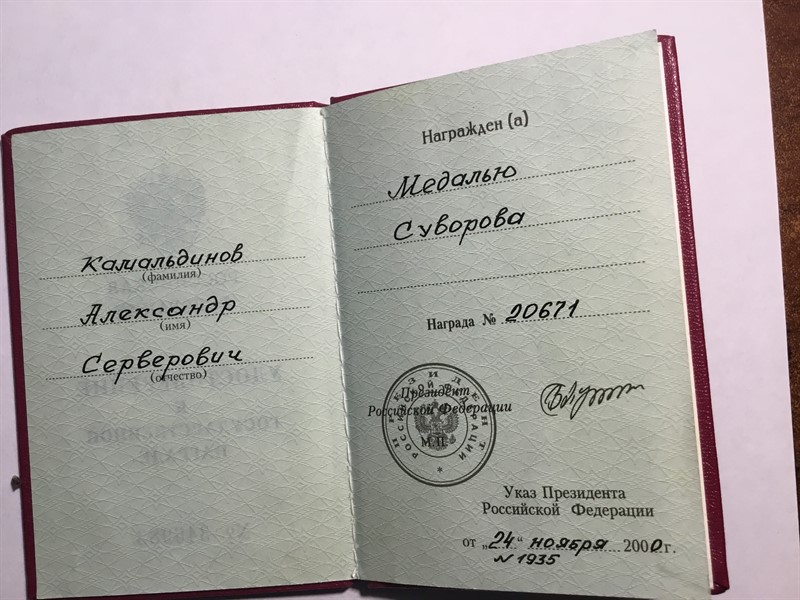 Камальдинов
(фамилия)
Александр
(имя)
Серверович
(отчество)
Награжден (а)
Медалью
Суворова
Награда № 20671
Президент
Российской Федерации
М.П.
ПРЕЗИДЕНТ
РОССИЙСКОЙ ФЕДЕРАЦИИ
Указ Президента
Российской Федерации
от „24“ ноября 2000г.
N 1935